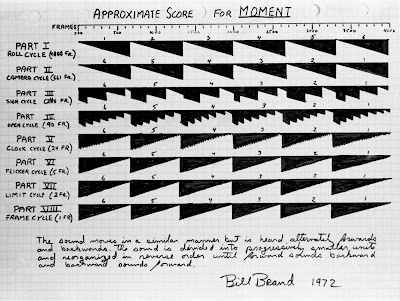 APPROXIMATE SCORE FOR MOMENT
FRAMES 0 500 1000 1500 2000 2500 3000 3500 4000
1 2 3 4 5 6
PART I
ROLL CYCLE (4000 FR.)
6 5 4 3 2 1
PART II
CAMERA CYCLE (661 FR.)
6 5 4 3 2 1
PART III
SIGN CYCLE FR.)
6 5 4 3 2 1
PART IV
OPEN CYCLE (90 FR.)
6 5 4 3 2 1
PART V
CLOCK CYCLE (24 FR)
6 5 4 3 2 1
PART VI
FLICKER CYCLE (5 FR.)
6 5 4 3 2 1
PART VII
LIMIT CYCLE (2 FR.)
6 5 4 3 2 1
PART VIII
FRAME CYCLE (1 FR)
The sound moves in a similar manner but is heard alternately forwards
and backwards. The sound is divided into progressively smaller units
and reorganized in reverse order until forward sounds backward
and backward sounds forward.
Bill Brand 1972